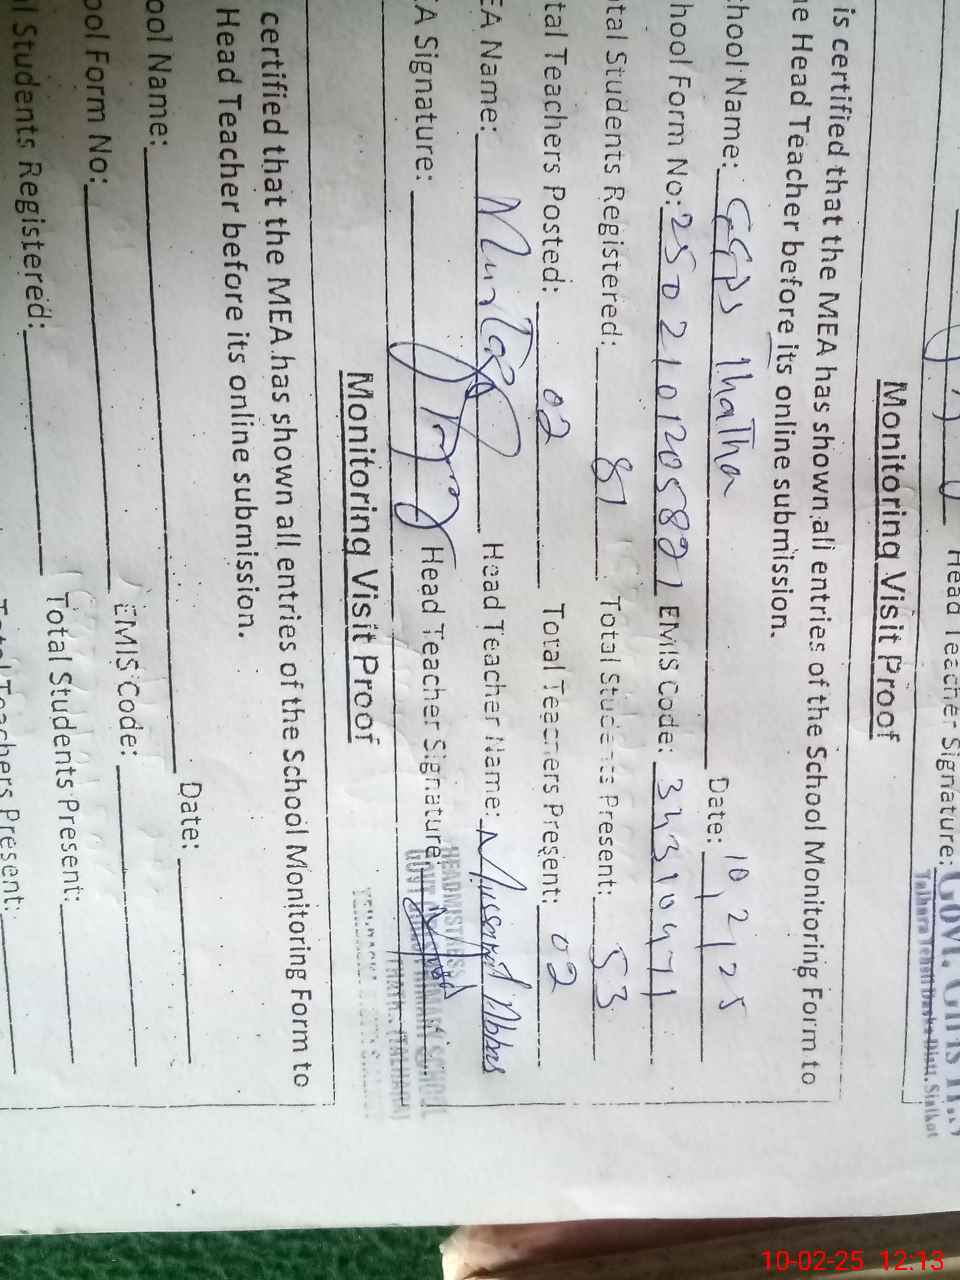 Head Teacher Signature:
Govt. Girls
Monitoring Visit Proof
is certified that the MEA has shown all entries of the School Monitoring Form to
e Head Teacher before its online submission.
chool Name: GGPS Thatha Date: 10/2/25
hool Form No: EMIS Code: 34310471
tal Students Registered: 81 Total Students Present: 53
tal Teachers Posted: 02 Total Teachers Present: 02
EA Name: Head Teacher Name: Abbas
EA Signature: Head Teacher Signature:
HEADMISTRESS
PRIMARY SCHOOL
Monitoring Visit Proof
certified that the MEA has shown all entries of the School Monitoring Form to
Head Teacher before its online submission.
ool Name: Date:
ool Form No: EMIS Code:
al Students Registered: Total Students Present:
Total Teachers Present:
10-02-25 12:13